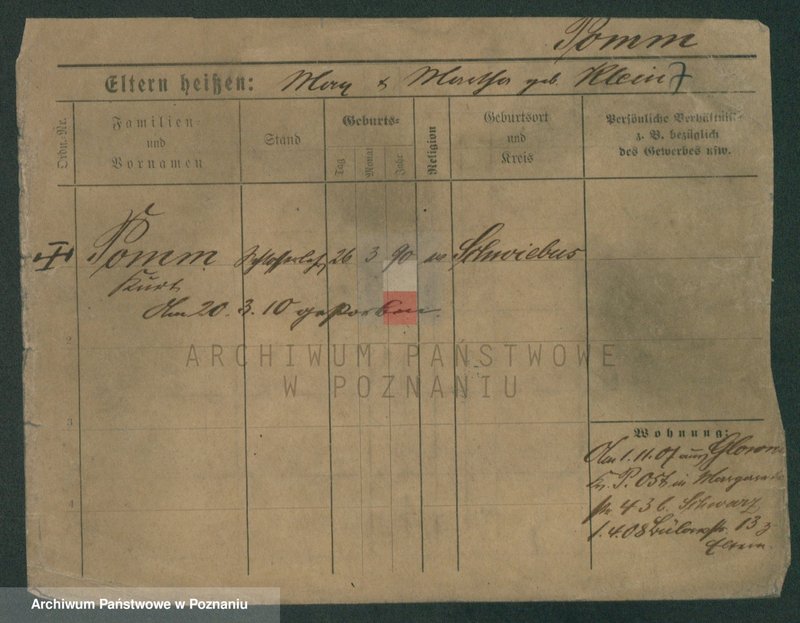 Pomm
Eltern heißen: Max & Martha geb. Klein
Ordn. Nr.
Familien- und Vornamen
Stand
Geburts-
Tag
Monat
Jahr
Religion
Geburtsort und Kreis
Persönliche Verhältnisse z. B. bezüglich des Gewerbes usw.
Pomm 26 3 90 ev Schwiebus
Kurt
Am 20. 3. 10 gestorben
2
ARCHIWUM PAŃSTWOWE
W POZNANIU
3
Wohnung:
Am 1.11.07 aus Glowno
Kr. P. Ost in
str 43 b. Schwarz
4
1.4.08 Bülowstr. 13
Eltern.
Archiwum Państwowe w Poznaniu